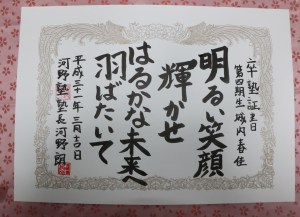 卒塾証書
第四期生 城内春佳
明るい笑顔
輝かせ
はるかな未来へ
羽ばたいて
平成三十一年 三月吉日
河野塾 塾長 河野 朗